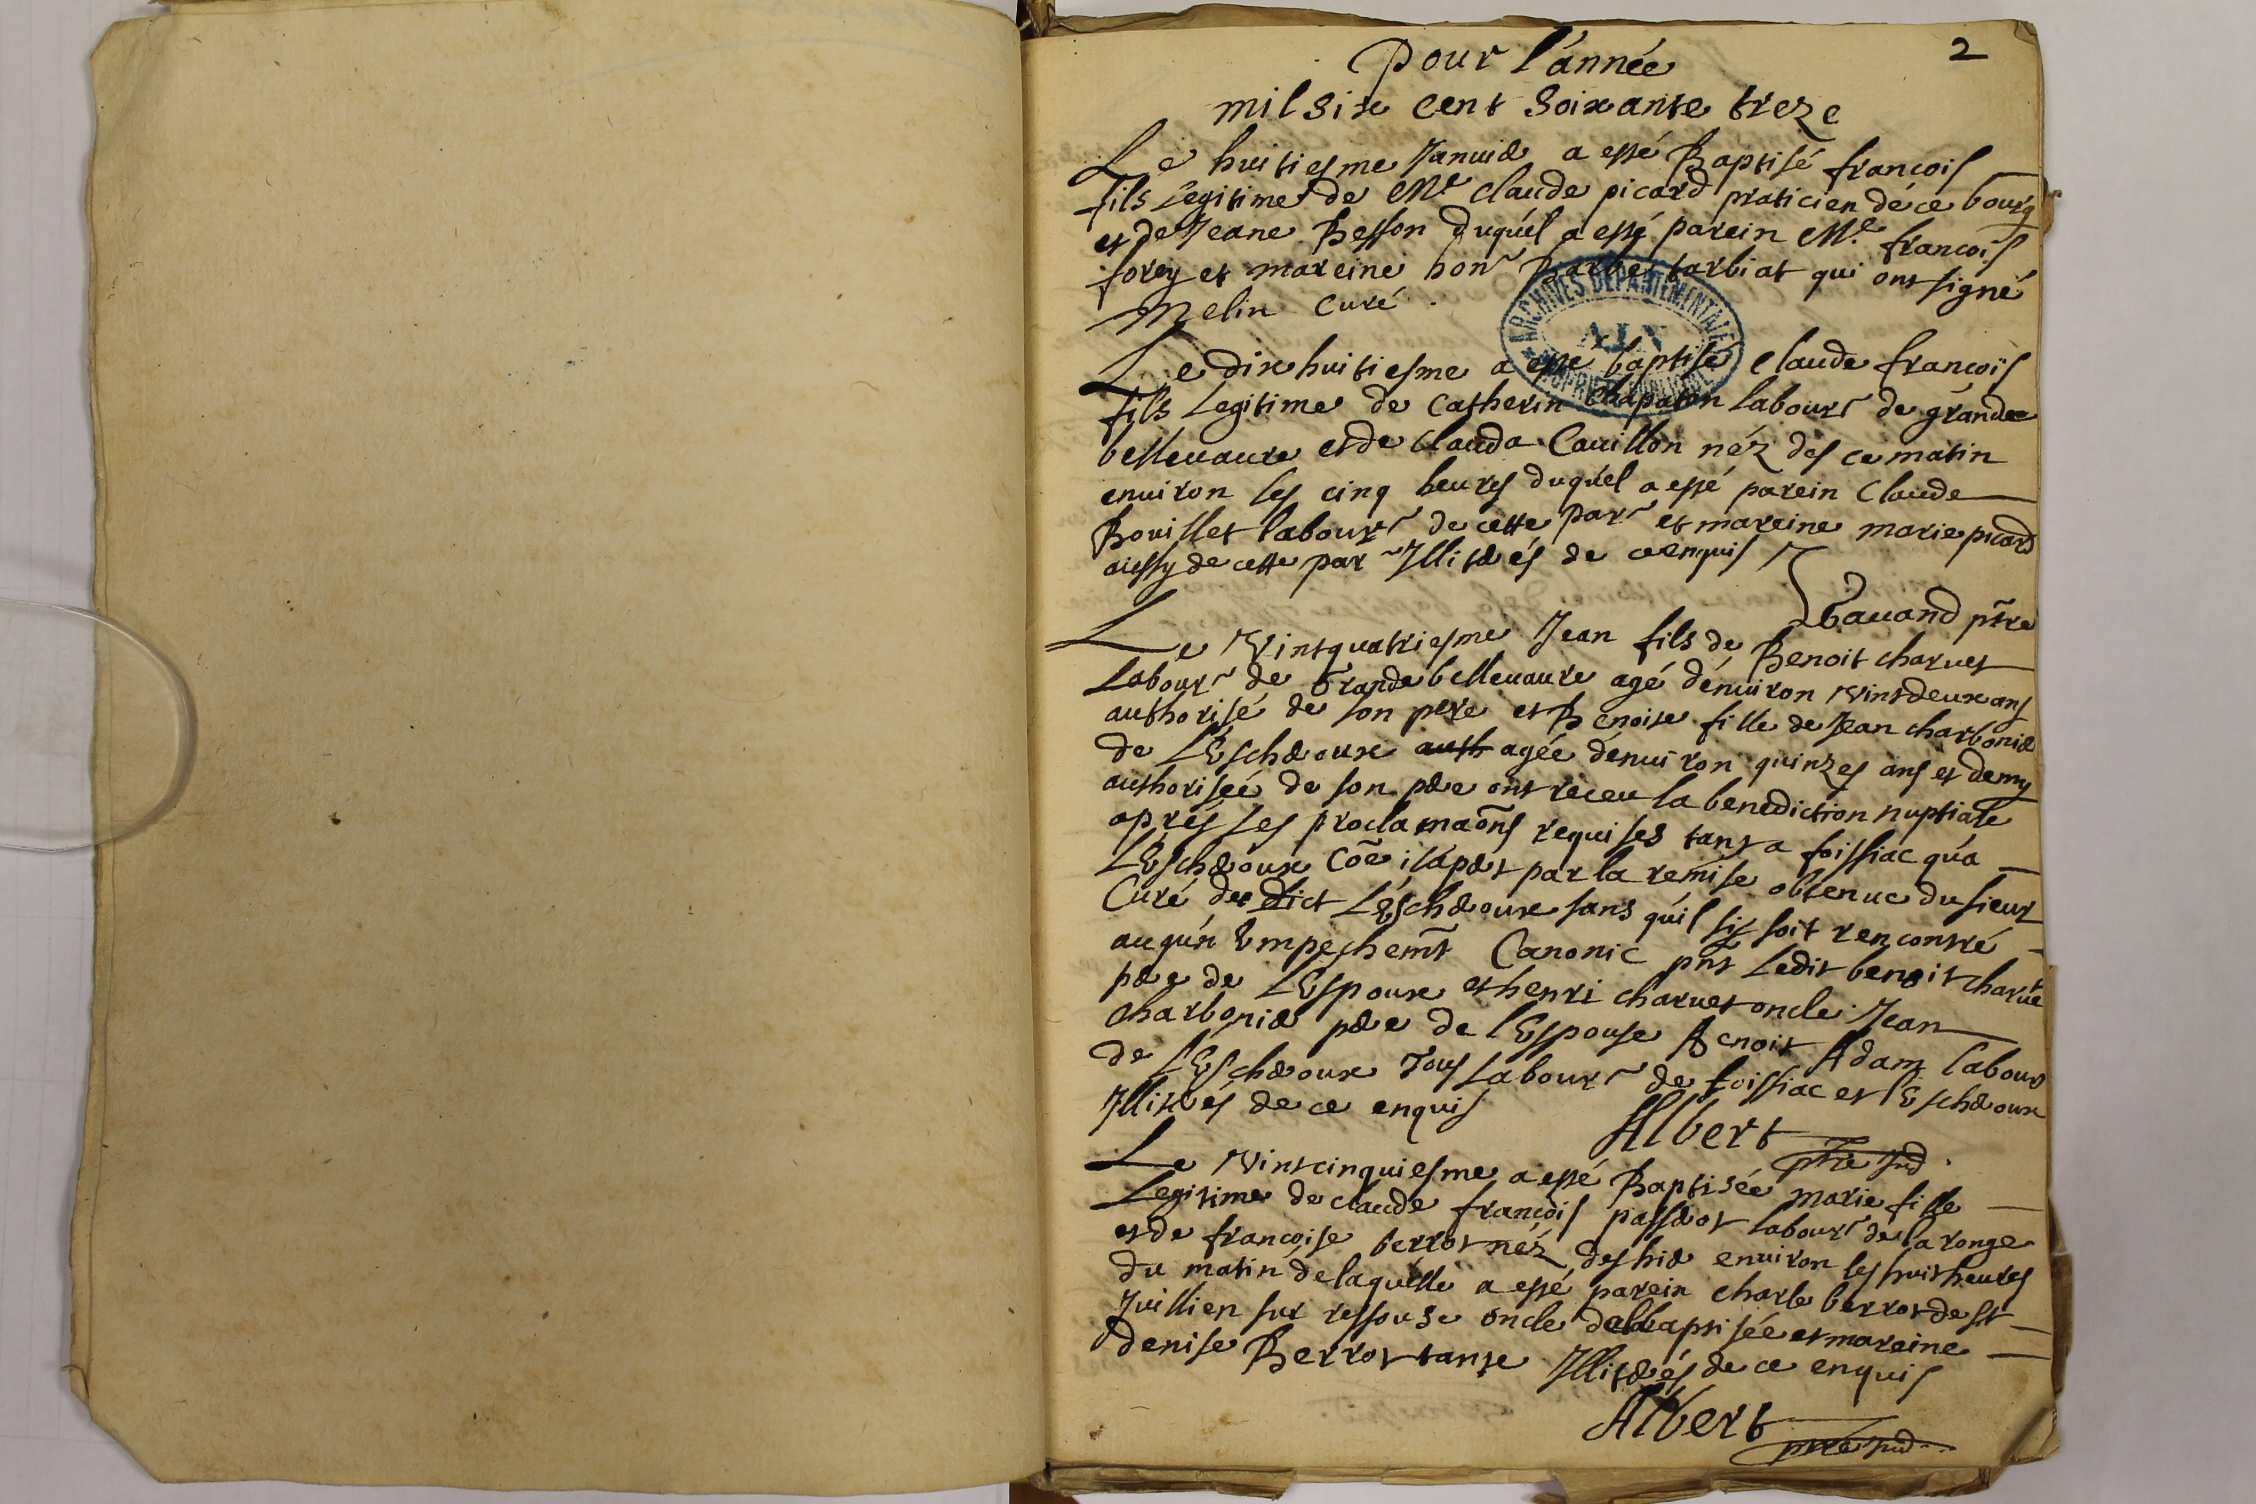 2
pour l'année
mil six cent soixante treze
Le huitiesme Januier a esté Baptisé francois
fils Legitime de Mre claude picard praticien de ce bourg
et de Jeane Besson duquél a esté parein Mre francois
forey et mareine honr Barbe tarbiat qui ont signé
Melin Curé .
ARCHIVES DEPARTEMENTALES
AIN
Le dix huitiesme a esté baptisé claude françois
fils Legitime de Catherin Chapaton labourr de grande
belleuaure et de Clauda Cauillon néz des ce matin
enuiron les cinq heures duquél a esté parein Claude
Bouillet labourr de cette parr et mareine marie picard
aussy de cette parr Illiterés de ce enquis
Bauand ptre
Le vint quatriesme Jean fils de Benoit charuet
Labourr de Grande belleuaure agé d'enuiron vint deux ans
authorisé de son pere et Benoite fille de Jean charbonier
de L'Escheroux auth agée d'enuiron quinzes ans et demy
authorisée de son pere ont receu la benediction nuptiale
aprés les proclamaõns requises tant a foissiac qu'a
L'Escheroux Cõe il apert par la remise obtenue du sieur
Curé de dict L'Escheroux sans qu'il sy soit rencontré
auqun Empeschemt Canonic pnt Ledit benoit charuet
pere de L'Espoux et henri charuet oncle Jean
charbonier pere de l'Espouse Benoit Adam labour
de L'Escheroux Tous Labourr de foissiac et l'Escheroux
Illiterés de ce enquis
Albert
ptre sud
Le vint cinquiesme a esté Baptisée marie fille
Legitime de claude françois passerot labourr de la ronge
et de francoise berrot néz des hier enuiron les huit heures
du matin de laquelle a esté parein charle berrot de st
Juillien sur ressouse oncle de la baptisée et mareine
denise Berrot tante Illiterés de ce enquis
Albert
ptre sud